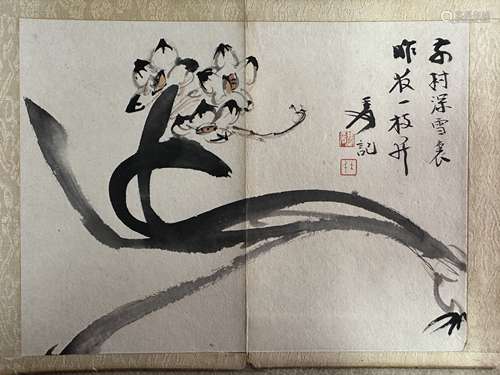 前村深雪裏
昨夜一枝开
爰記